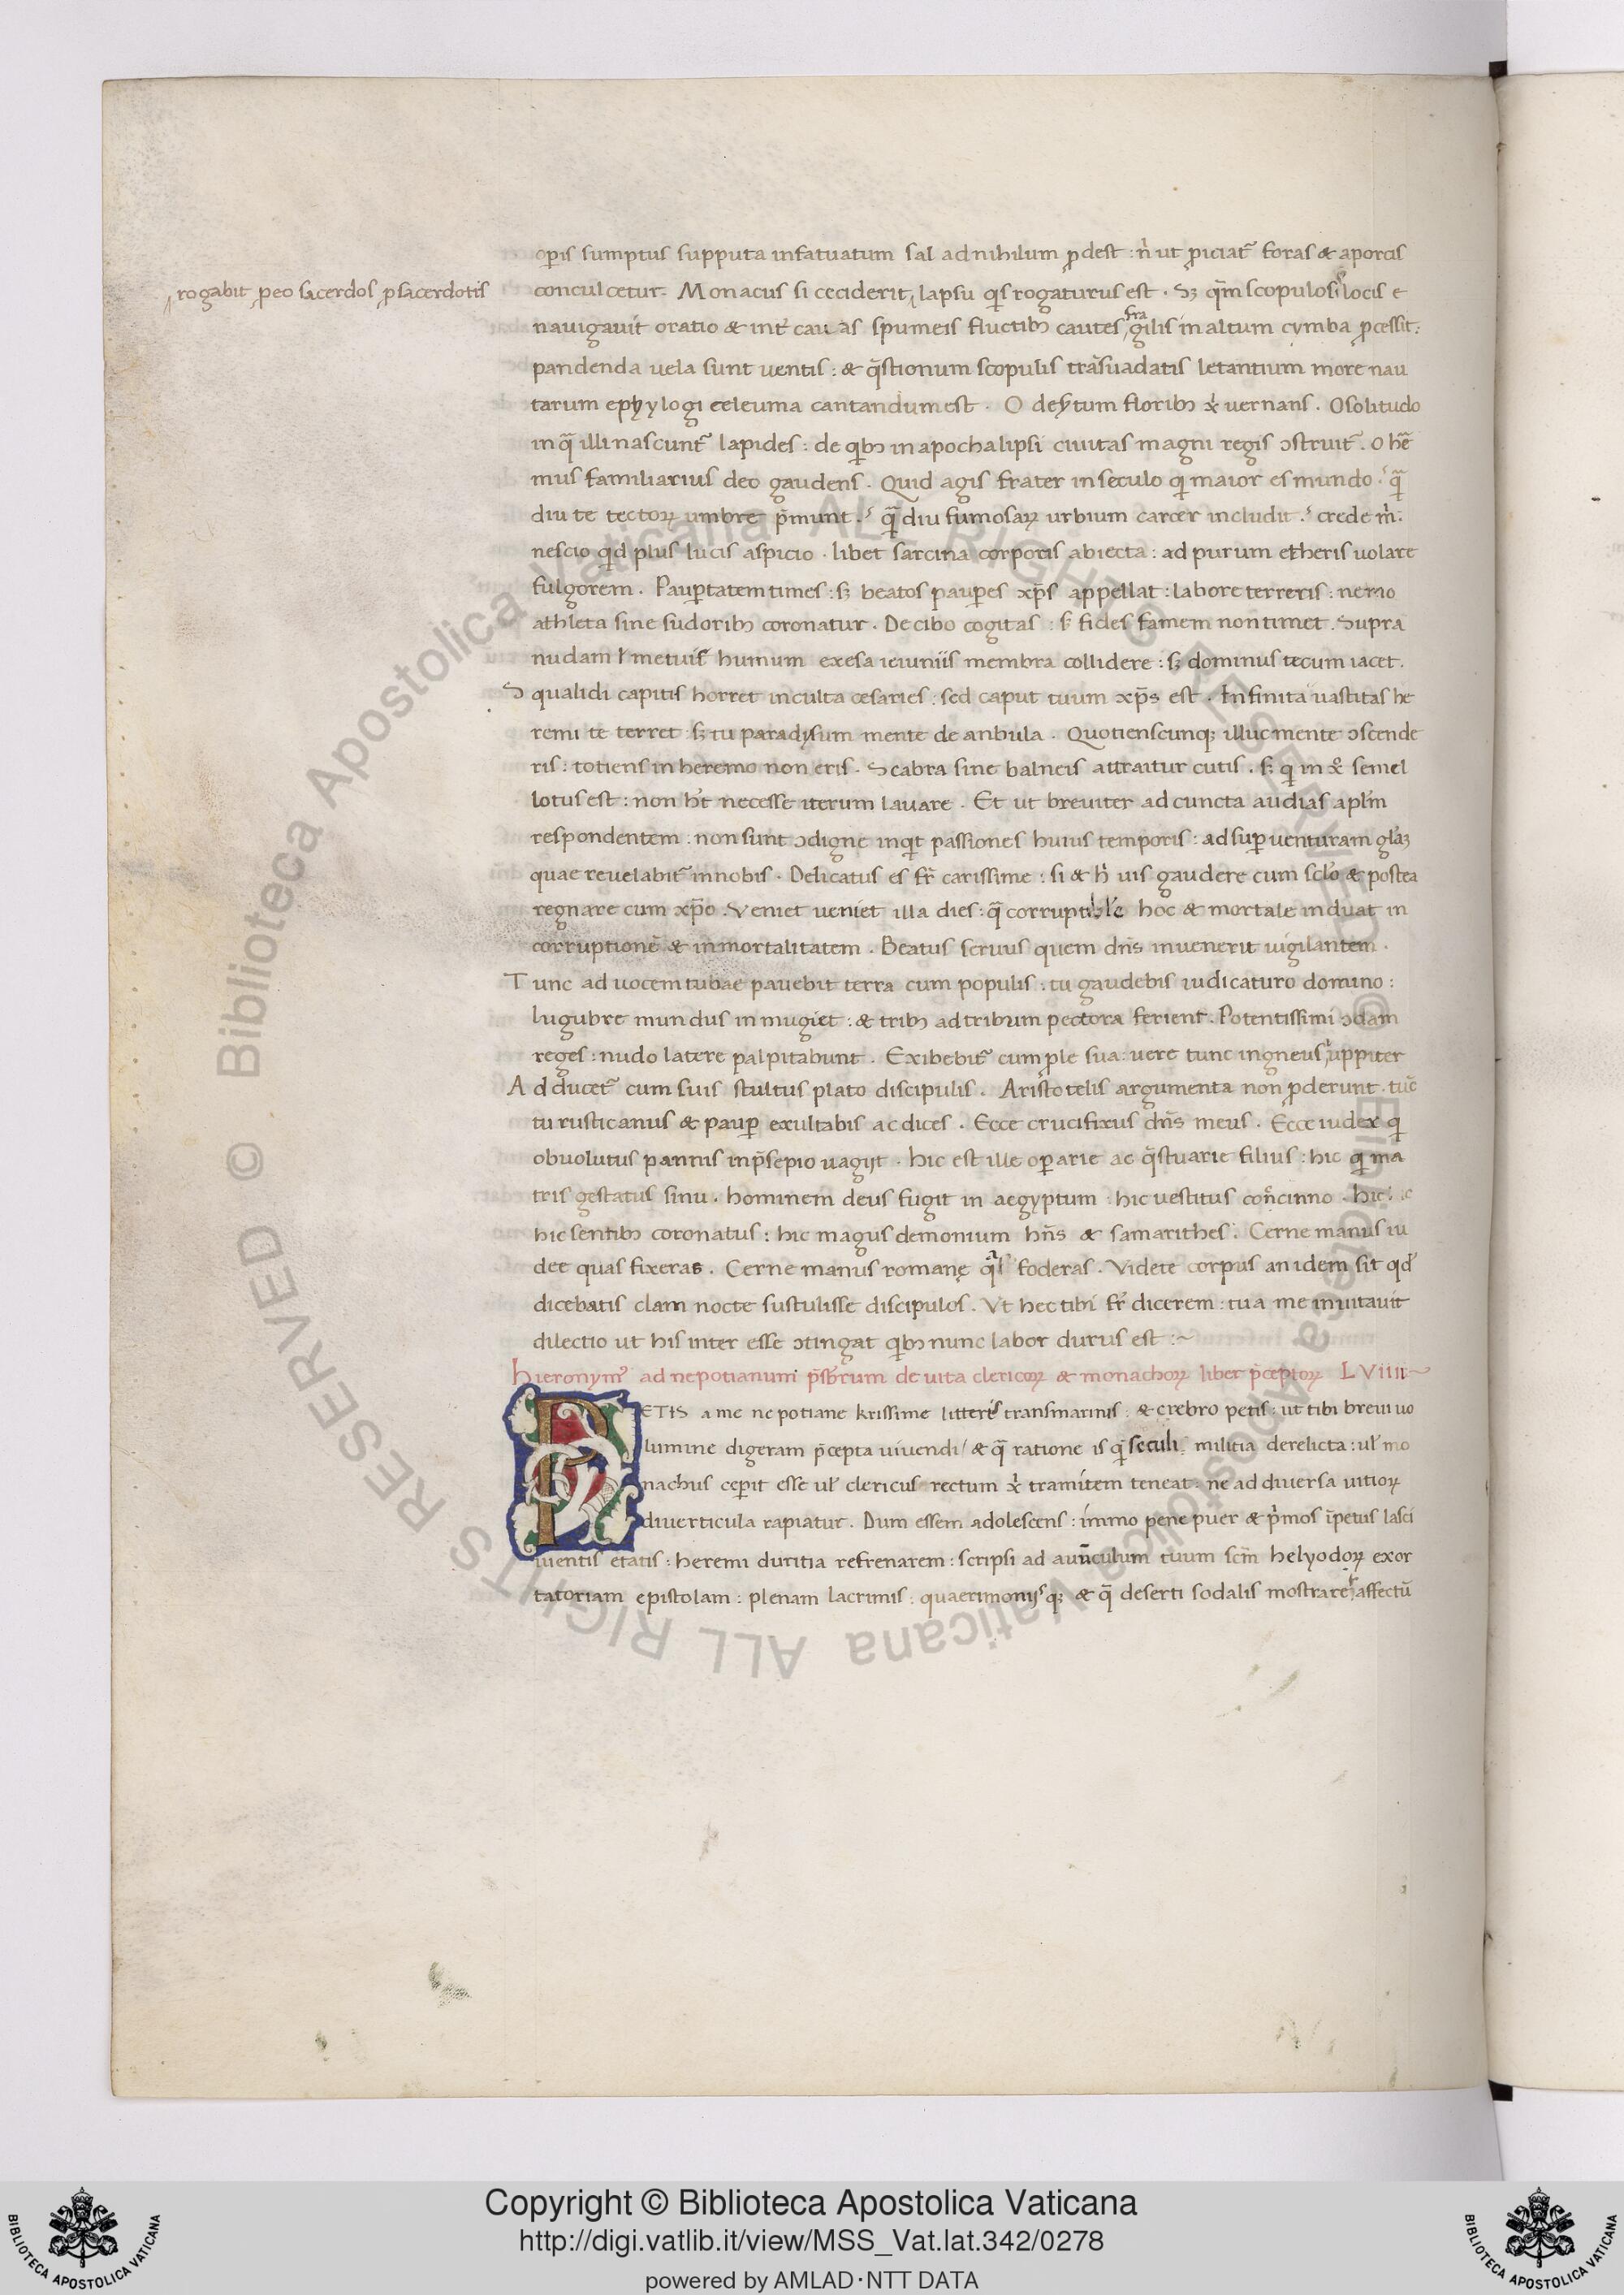 oꝑis sumptus supputa infatuatum sal ad nihilum ꝓdest : n̄ ut ꝓiciat᷑ foras & aporcis
rogabit ꝑeo sacerdos ꝑ sacerdotis
conculcetur. Monacus si ceciderit, lapsu qis rogaturus est . Sꝫ qm̄ scopulosis locis e
nauigauit oratio & int̄ cauas spumeis fluctibꝫ cautes fragilis in altum cymba ꝓcessit :
pandenda uela sunt uentis : & q̄stionum scopulis trāsuadatis letantium more nau
tarum ephylogi celeuma cantandum est . O desertum floribꝫ xp̄i uernans . O solitudo
in q̄ illi nascunt᷑ lapides : de qibꝫ in apochalipsi ciuitas magni regis ꝯstruit᷑ . o he
mus familiarius deo gaudens . Quid agis frater in seculo qi maior es mundo ? q̄
diu te tectoꝝ umbre p̄munt . ? q̄ diu fumosaꝝ urbium carcer includit . ? crede m̄.
nescio qd plus lucis aspicio . libet sarcina corporis abiecta : ad purum etheris uolare
fulgorem . Pauꝑtatem times : sꝫ beatos pauꝑes xp̄s appellat : labore terreris : nemo
athleta sine sudoribꝫ coronatur . De cibo cogitas : sꝫ fides famem non timet . Supra
nudam metuis humum exesa ieiuniis membra collidere : sꝫ dominus tecum iacet.
Squalidi capitis horret inculta cesaries : sed caput tuum xp̄s est . Infinita uastitas he
remi te terret : sꝫ tu paradysum mente de anbula . Quotienscunqꝫ illuc mente ꝯscende
ris : totiens in heremo non eris . Scabra sine balneis attraitur cutis . sꝫ qi in xp̄o semel
lotus est : non h̄t necesse iterum lauare . Et ut breuiter ad cuncta audias apl̄m
respondentem : non sunt ꝯdigne inqit passiones huius temporis : ad suꝑuenturam gl̄aꝫ
quae reuelabit᷑ in nobis . Delicatus es fr̄ carissime : si & h̄ uis gaudere cum sclo & postea
regnare cum xp̄o . Veniet ueniet illa dies : q̄ corruptible hoc & mortale induat in
corruptionē & inmortalitatem . Beatus seruus quem dn̄s inuenerit uigilantem .
Tunc ad uocem tubae pauebit terra cum populis : tu gaudebis iudicaturo domino :
lugubre mundus inmugiet : & tribꝫ ad tribum pectora ferient . Potentissimi ꝯdam
reges : nudo latere palpitabunt . Exibebit᷑ cum ple sua : uere tunc ingneus iuppiter
Adducet᷑ cum suis stultus plato discipulis . Aristotelis argumenta non ꝓderunt . tūc
tu rusticanus & pauꝑ exultabis ac dices . Ecce crucifixus dn̄s meus . Ecce iudex qi
obuolutus pannis in p̄sepio uagijt . hic est ille oꝑarie ac q̄stuarie filius : hic qi ma
tris gestatus sinu . hominem deus fugit in aegyptum : hic uestitus concinno . hic
hic sentibꝫ coronatus : hic magus demonium hn̄s & samarithes . Cerne manus iu
dee quas fixeras . Cerne manus romane foderas . Videte corpus an idem sit qd
dicebatis clam nocte sustulisse discipulos . Vt hec tibi fr̄ dicerem : tua me inuitauit
dilectio ut his inter esse ꝯtingat qibꝫ nunc labor durus est :~
Hieronymꝰ ad nepotianum p̄sbr̄um de uita clericoꝝ & monachoꝝ liber p̄ceptoꝝ LVIIII~
PETIS a me nepotiane krissime litteris transmarinis : & crebro petis : ut tibi breui uo
lumine digeram p̄cepta uiuendi / & q̄ ratione is qi seculi militia derelicta : ul̄ mo
nachus ceꝑit esse ul̄ clericus rectum xp̄i tramitem teneat : ne ad diuersa uitioꝝ
diuerticula rapiatur . Dum essem adolescens : immo pene puer & p̄mos īpetus lasci
uientis etatis : heremi duritia refrenarem : scripsi ad auunculum tuum scm̄ helyodoꝝ exor
tatoriam epistolam : plenam lacrimis : quaerimonijsqꝫ & q̄ deserti sodalis mostraret affectū
Copyright © Biblioteca Apostolica Vaticana
http://digi.vatlib.it/view/MSS_Vat.lat.342/0278
powered by AMLAD·NTT DATA